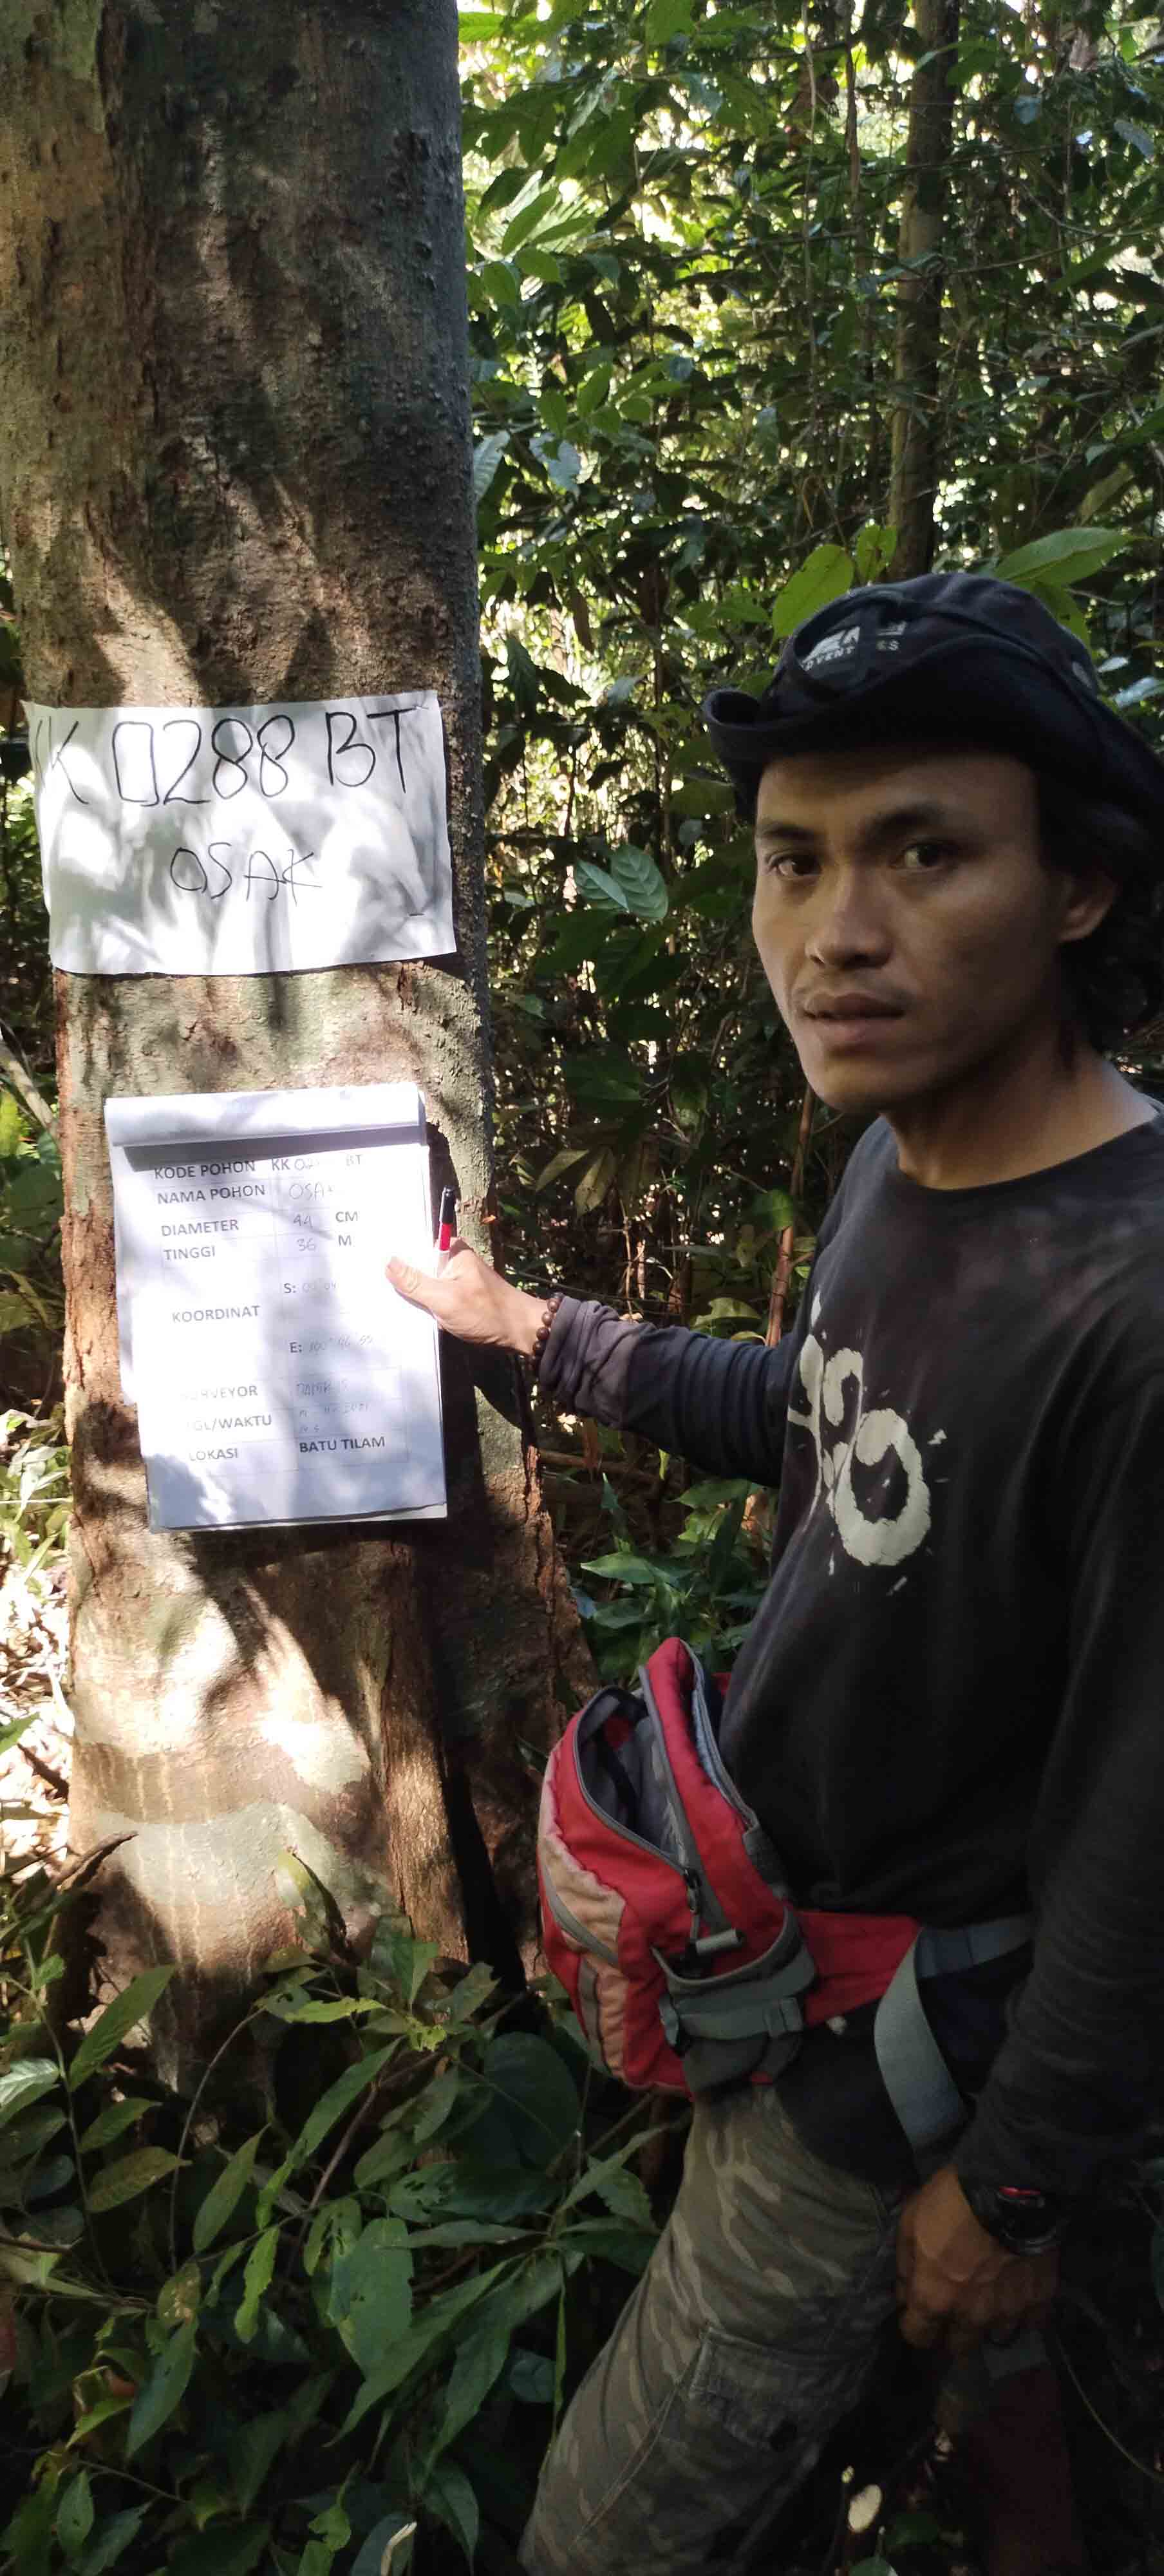 K 0288 BT
OSAK
KODE POHON KK 02 BT
NAMA POHON OSAK
DIAMETER 44 CM
TINGGI 36 M
S:
KOORDINAT
E:
SURVEYOR
TGL/WAKTU
LOKASI BATU TILAM